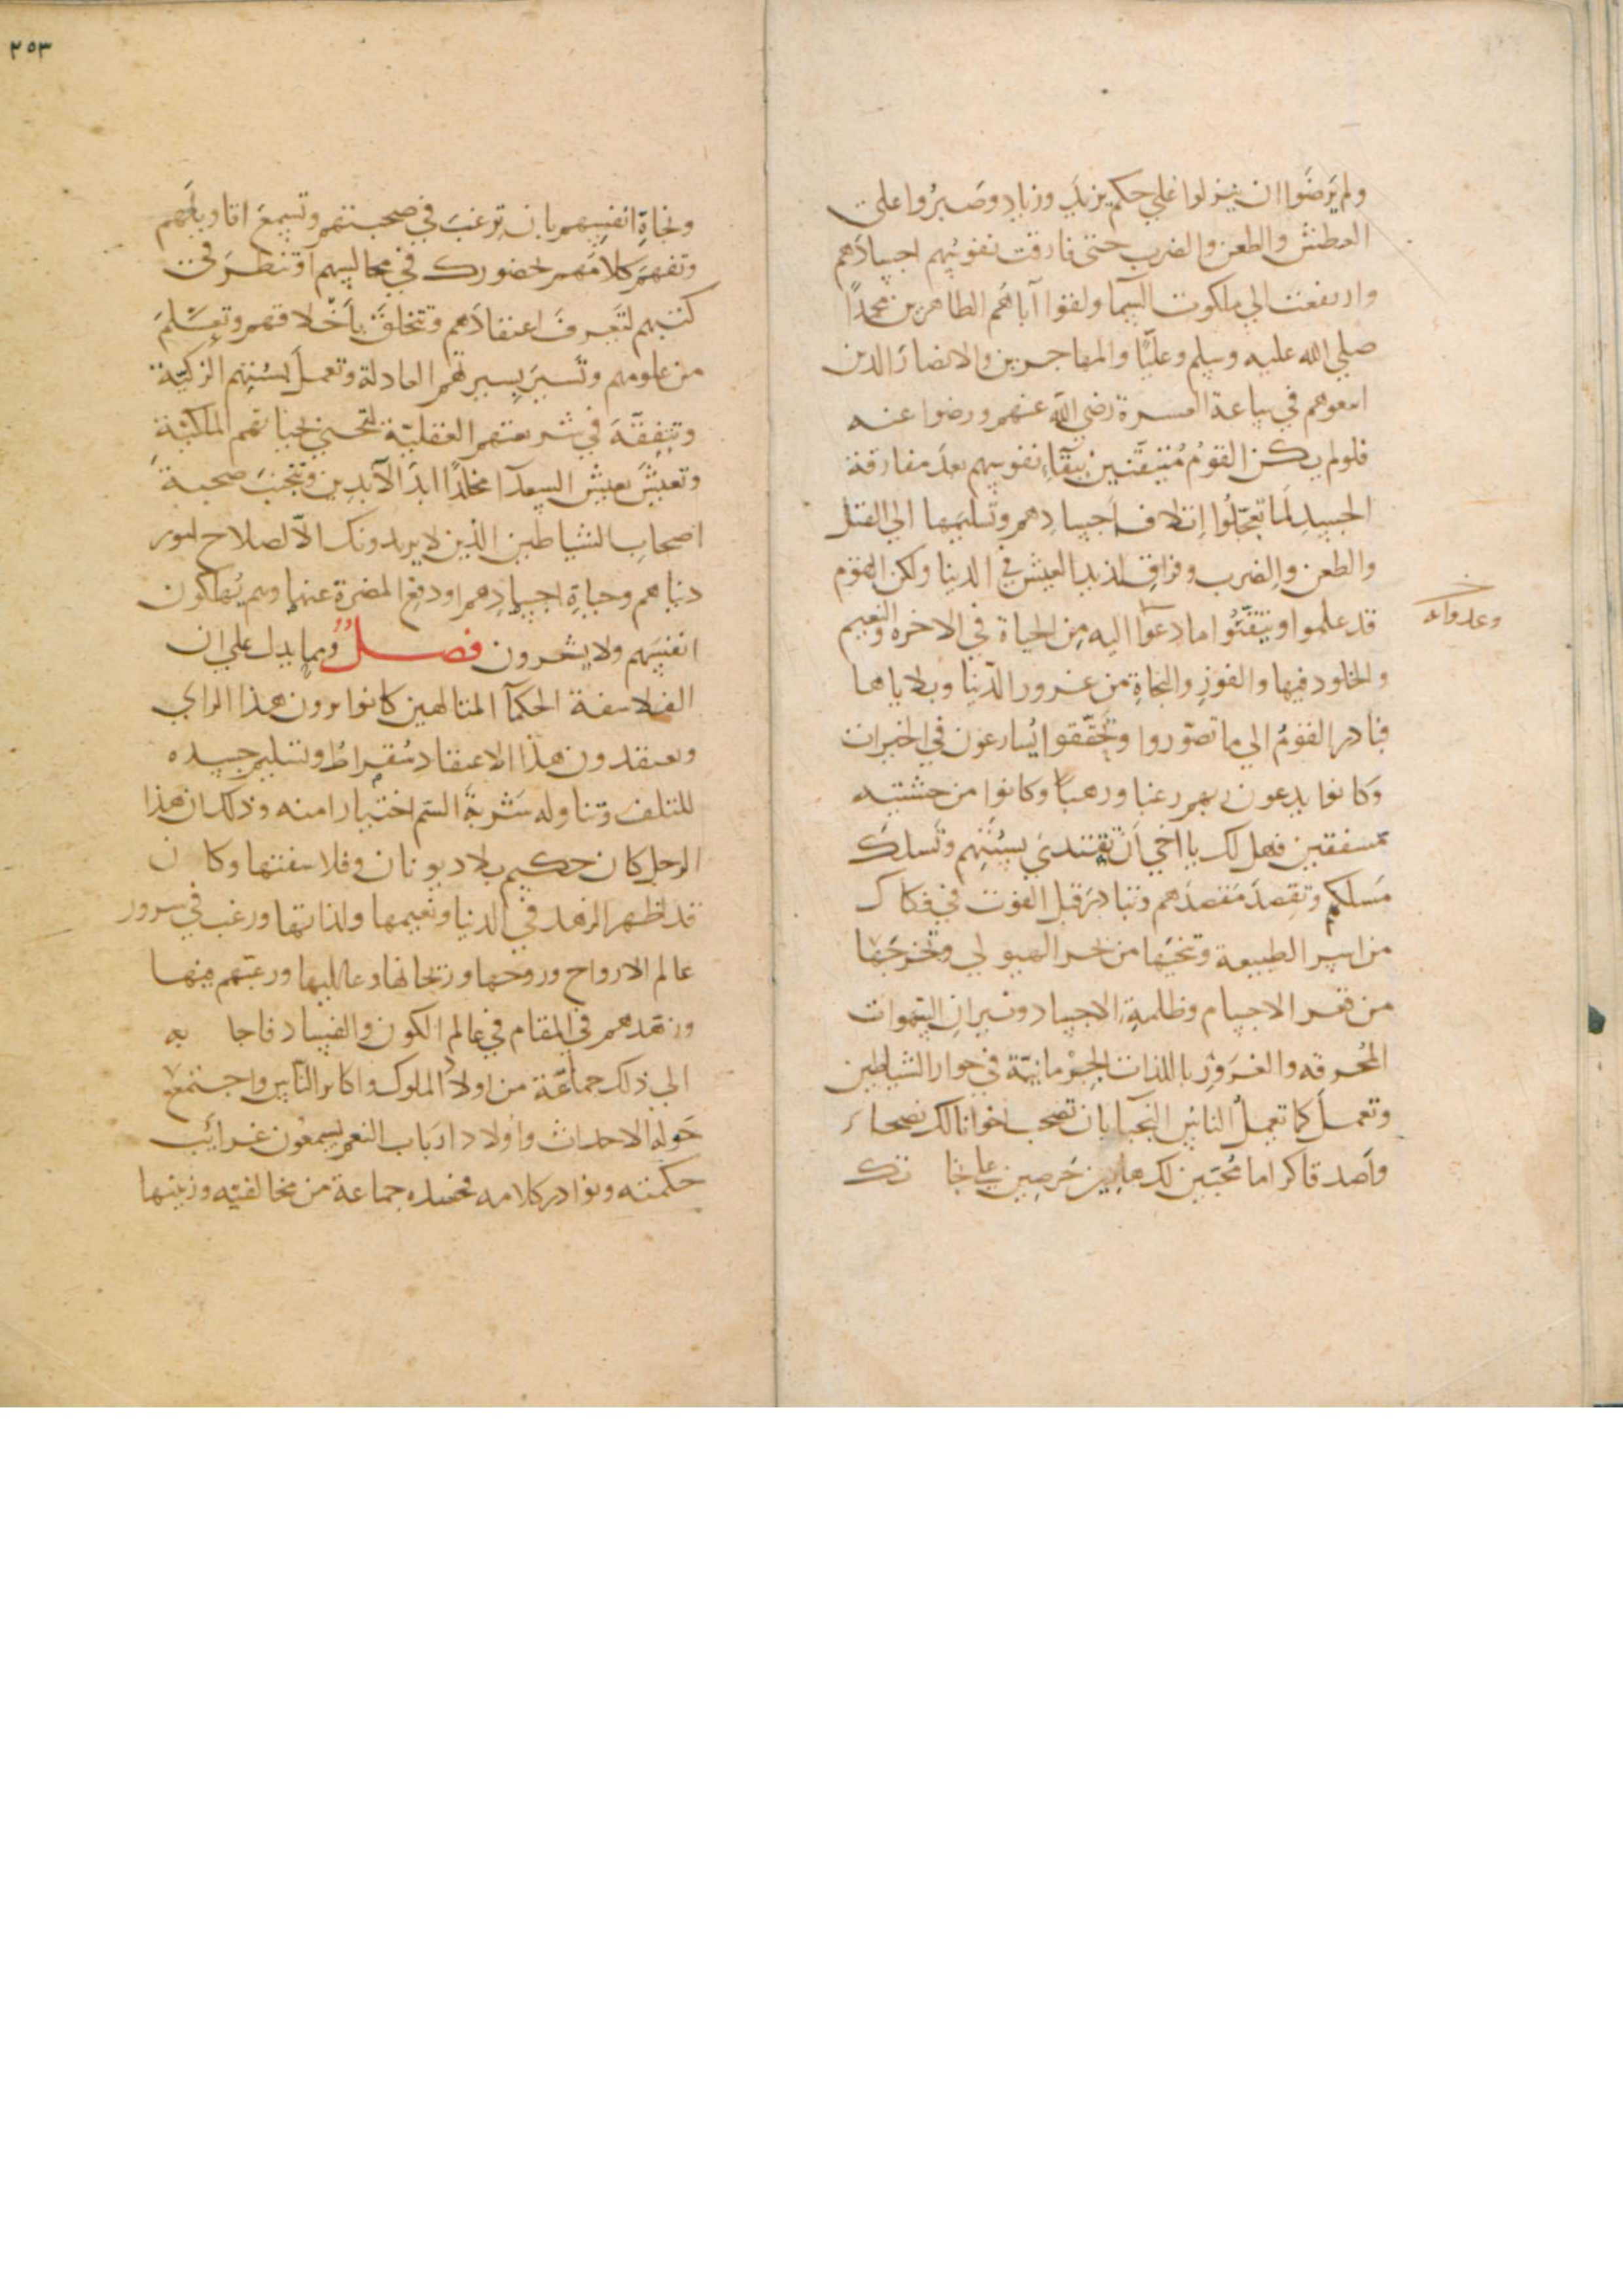 ولم يَرضَوا ان ينزلوا على حكم يزيدَ وزيادٍ وصَبرُوا على
العطش والطعن والضرب حتى فارقت نفوسُهم اجسادَهم
وارتفعت الى ملكوت السما ولقوا آباهُم الطاهرين محمدًا
صلي الله عليه وسلم وعليًّا والمهاجرين والانصارَ الذين
اتبعوهم في ساعة العسرة رضي الله عنهم ورضوا عنه
فلو لم يكن القومُ مُتيَقّنين ببقآءِ نفوسهم بعدَ مفارقة
الجسدِ لَما تعجّلُوا اِتلافَ اَجسادِهم وتسليمَها الي القتل
والطعن والضرب وفراقِ لذيذ العيش في الدنيا ولكن القوم
قد علموا وتيقّنُوا ما دعوا اليه مِن الحياة في الاخره والنعيم
وعدواه
والخلود فيها والفوزِ والنجاةِ من غرور الدّنيا وبلاياها
فبادر القومُ الي ما تصوّروا وتحقّقوا يُسارعون في الخيرات
وَكانوا يدعون ربهم رغبا ورهبًا وكانوا من خشيته
مشفقين فهل لك يا اخي اَن تقتدىَ بسُنّتِهم وتَسلكَ
مَسلكهم وتقصدَ مَقصدَهم وتبادرَ قبل الفوت في فكاك
من اسر الطبيعة وتنجيَها من بحر الهيولي وتخرجَها
من قعر الاجسام وظلمةِ الاجساد ونيرانِ الشهوات
المُحرقه والغُرَورِ باللذات الجِرْمانيّة في جوار الشياطين
وتعملَ كما تعملُ الناسُ النجبآ بان تصحب اخوانا لك نصحاء
واَصدقا كراما مُحبّين لك حَرصين على نجا تك
٢٥٣
ونجاةِ انفسِهم بان ترغبَ في صحبتهم وتسمعَ اقاويلَهم
وتفهمَ كلامَهم بحضورك في مجالسهم اَو تنظرَ في
كتبهم لتَعرفَ اعتقادَهم وتتخلقَ باَخلاقهم وتعلّمَ
من علومهم وتَسيرَ بسيرتهم العادلة وتعملَ بسُنتِهم الزكيّة
وتتفقّهَ في شريعتهم العقليّة لتحيي بحياتهم الملكيّةِ
وتعيشَ بعيشِ السعدآ مخلّدًا ابدَ الآبدين وتتجنبَ صحبةَ
اصحابِ الشياطين الذين لا يريدونك الّا لصلاح امور
دنياهم وحياةِ اجسادِهم او دفع المضرة عنها وهم يُهلكون
انفسَهم ولا يشعرون فصــل ومما يدل علي ان
الفلاسفة الحكمآ المتالهين كانوا يرون هذا الراي
ويعتقدون هذا الاعتقاد سُقراطُ وتسليم جسده
للتلف وتناوله شَربةَ السّم اختيارا منه وذلك ان هذا
الرجل كان حكيم بلاد يونان وفلاسفتها وكان
قد اظهر الزهد في الدنيا ونعيمها ولذاتها ورغب في سرور
عالم الارواح وروحها وريحانها ودعا اليها ورغبهم فيها
وزهّدهم في المقام في عالم الكون والفساد فاجابه
الي ذلك جماعَة من اولاد الملوك واكابر الناس واجتمع
حَوله الاحداث واولاد ارباب النعم يسمعون غرائب
حكمته ونوادر كلامه فحسده جماعة من مخالفيه